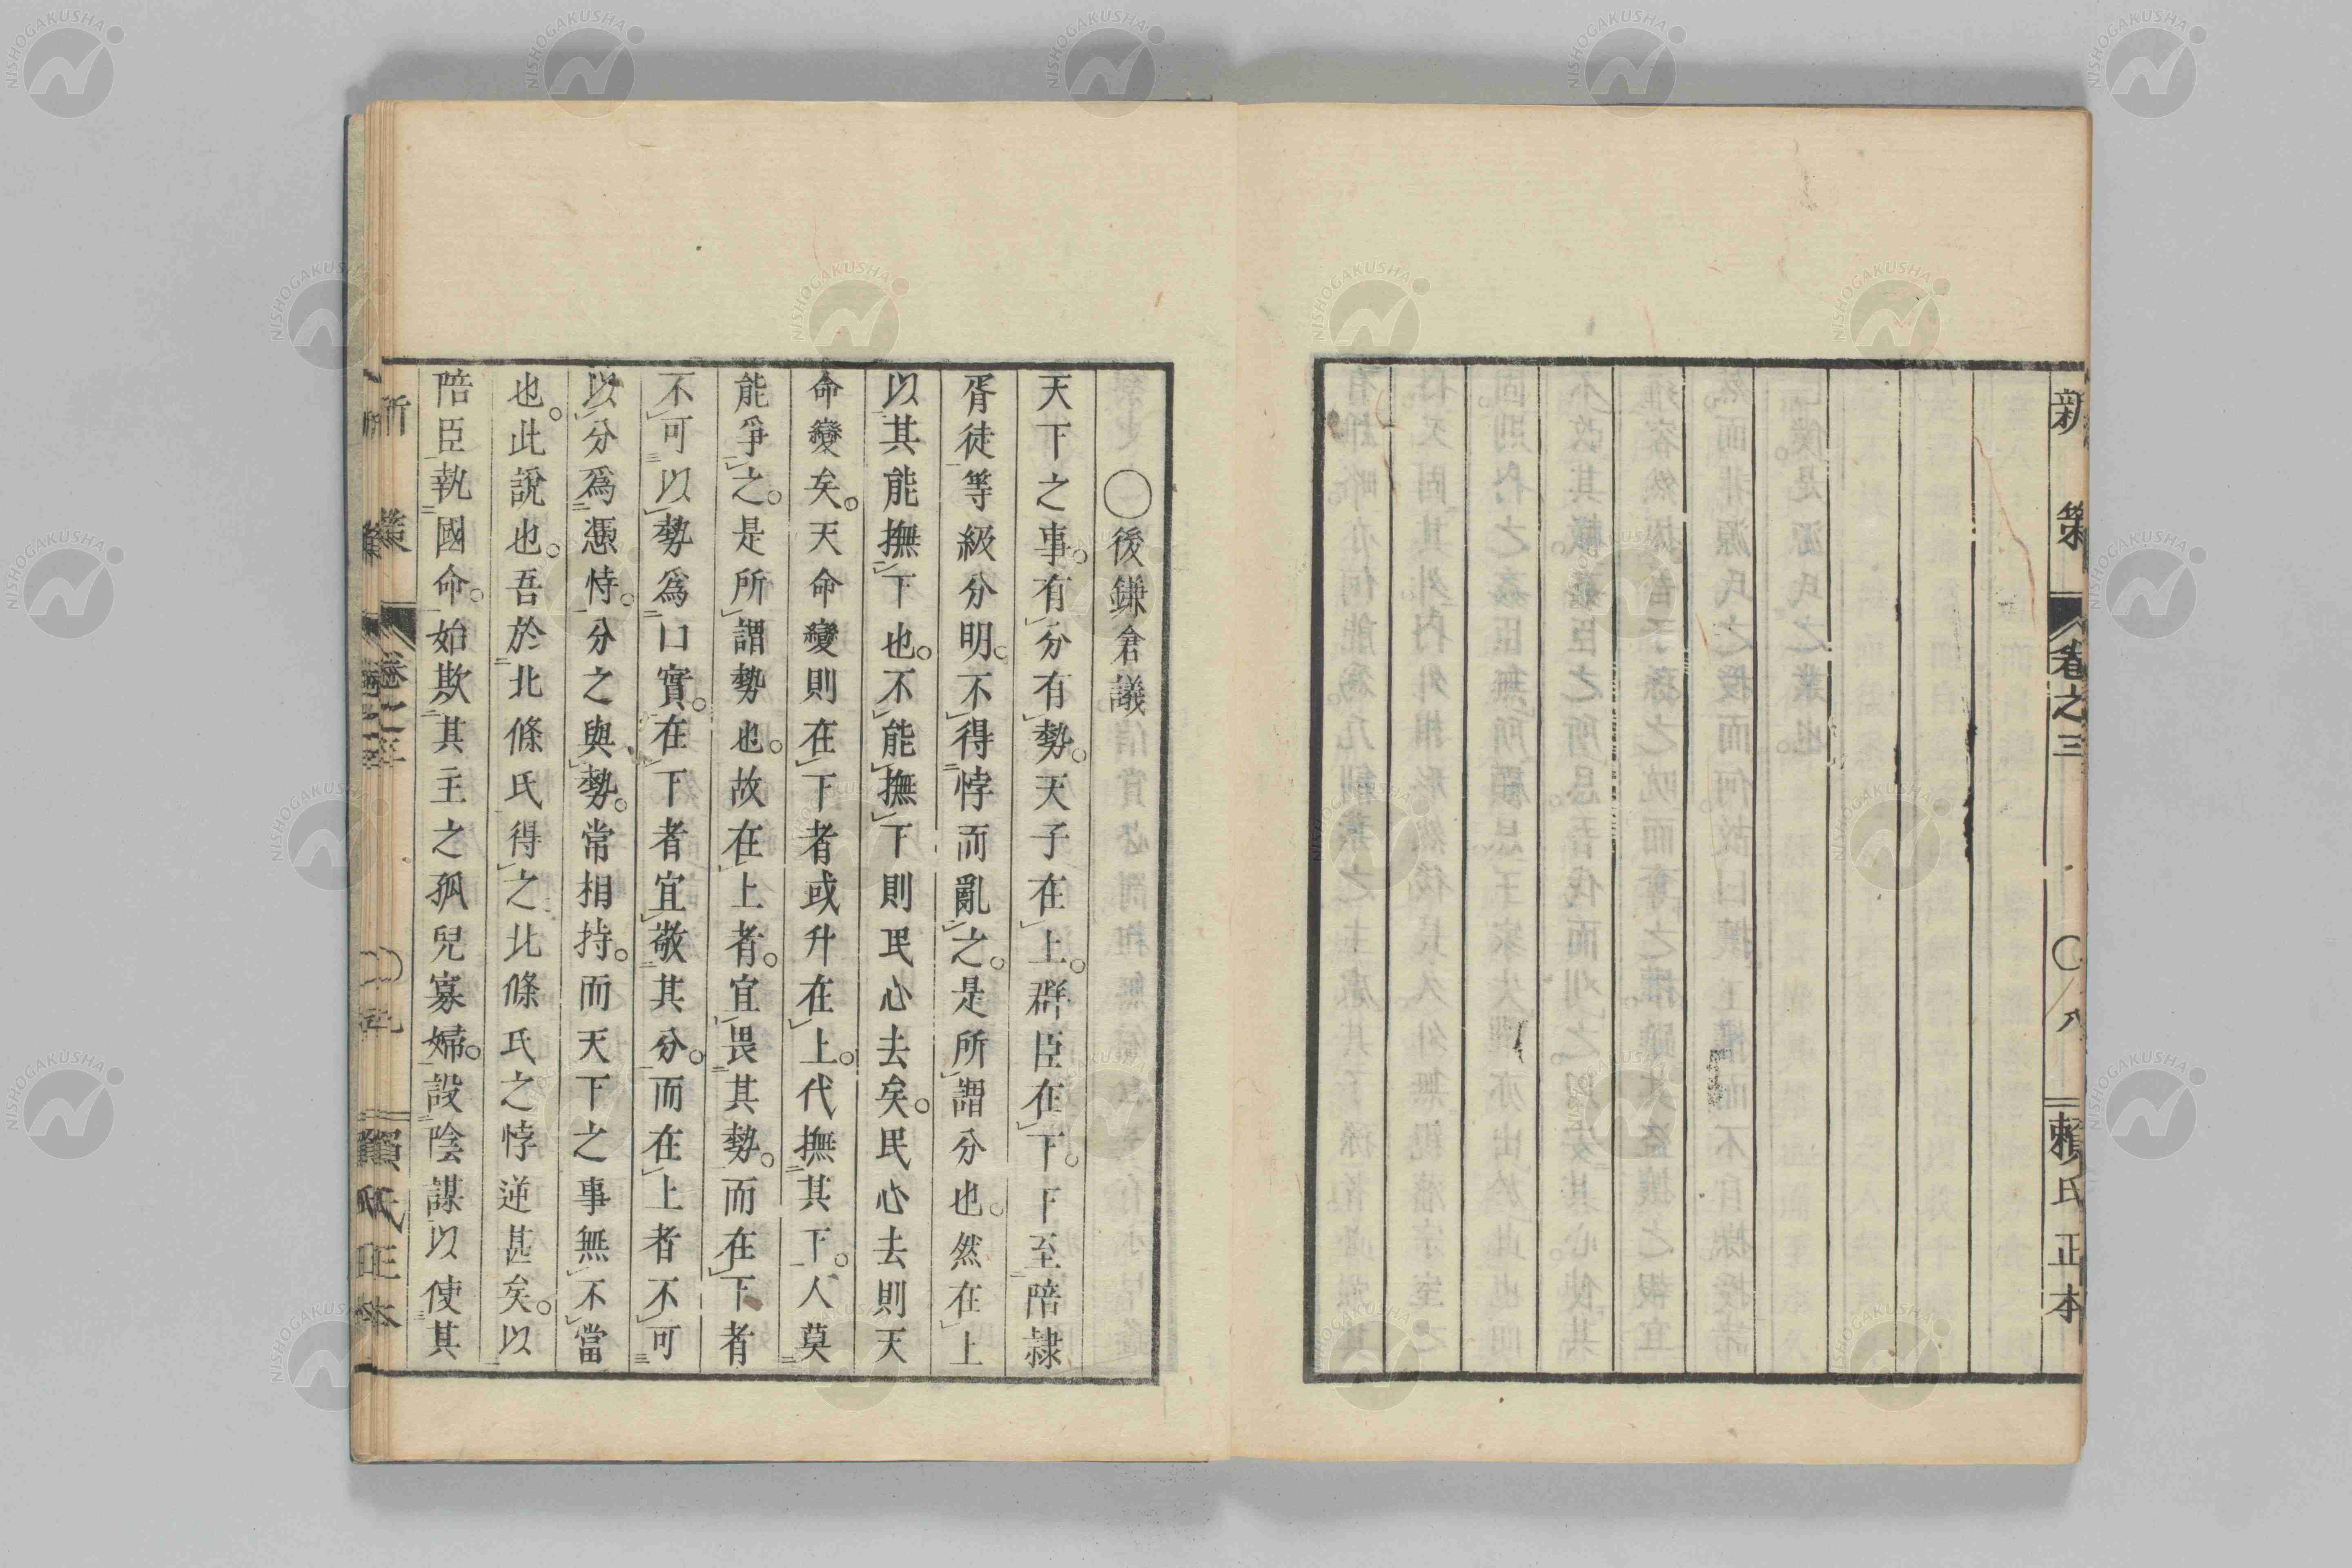 新策 卷之三 〇八 賴氏正本
〇後鎌倉議
天下之事。有分有勢。天子在上。群臣在下。下至陪隷
胥徒等級分明。不得悖而亂之。是所謂分也。然在上
以其能撫下也。不能撫下則民心去矣。民心去則天
命變矣。天命變則在下者或升在上。代撫其下。人莫
能爭之。是所謂勢也。故在上者。宜畏其勢。而在下者
不可以勢爲口實。在下者宜敬其分。而在上者不可
以分爲憑恃。分之與勢。常相持。而天下之事無不當
也。此說也。吾於北條氏得之北條氏之悖逆甚矣。以
陪臣執國命。始欺其主之孤兒寡婦。設陰謀以使其